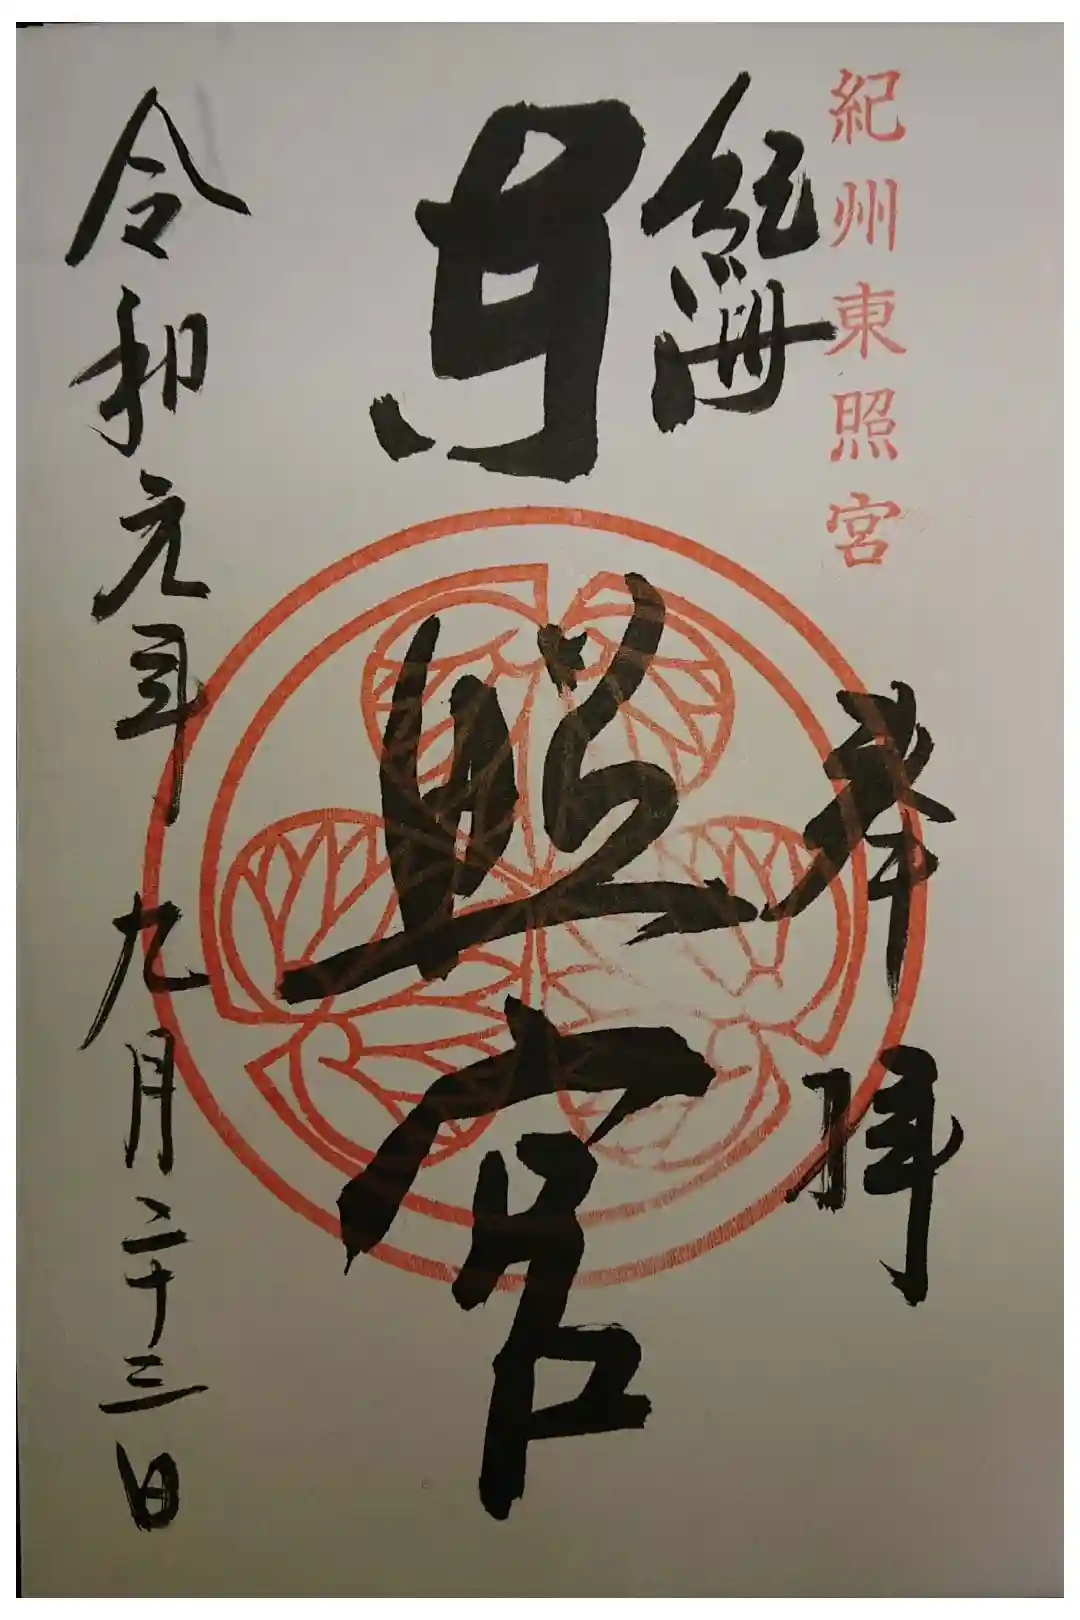 紀州東照宮
奉拝
紀州
東照宮
令和元年九月二十三日